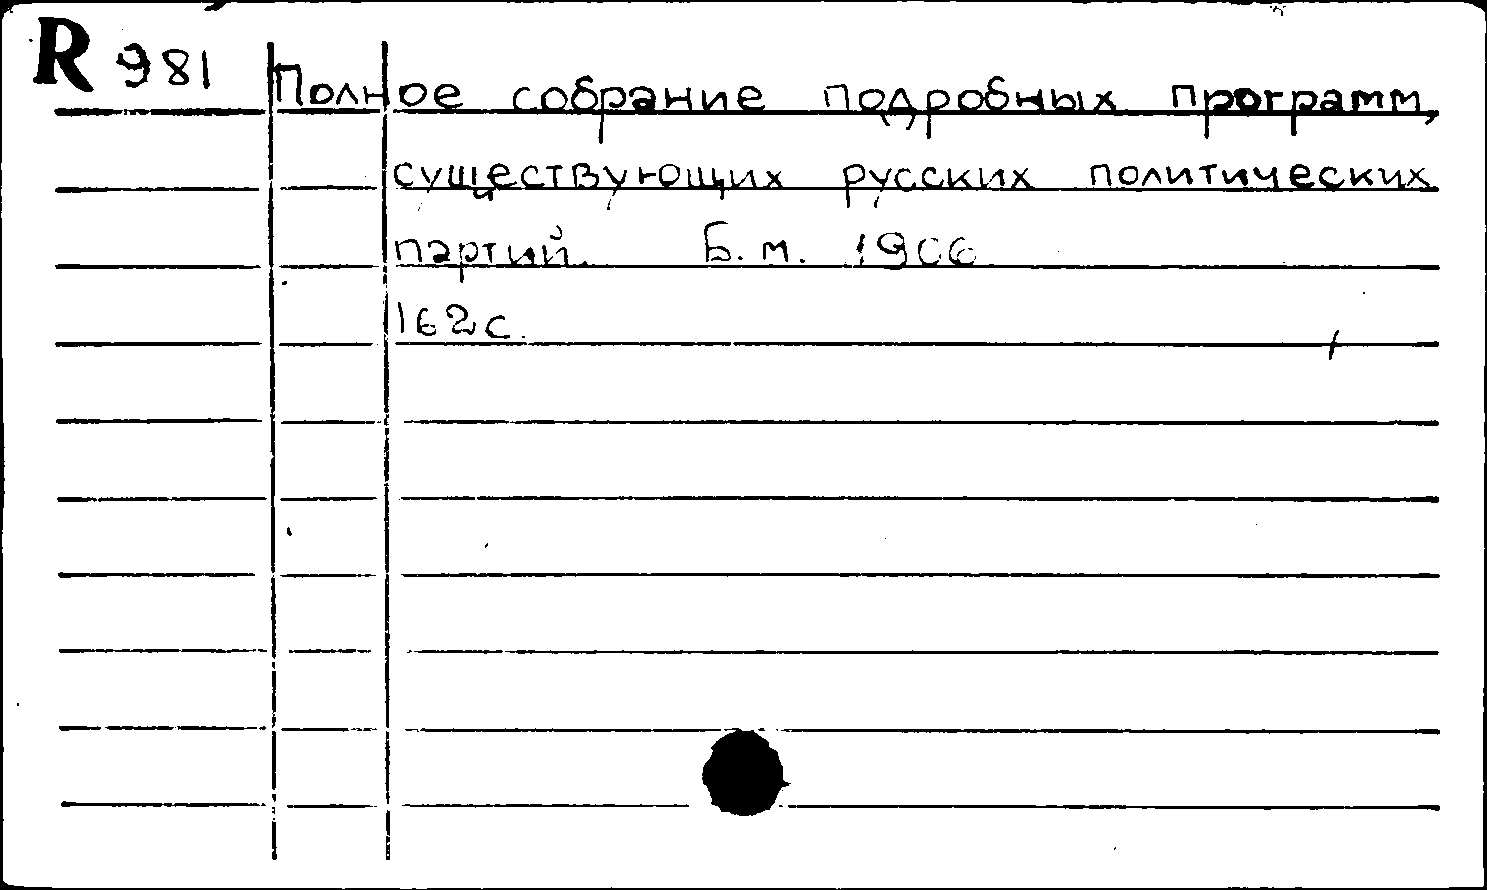 R 981 Полное собрание подробных программ,
существующих русских политических
партий. Б.м. 1906
162с.